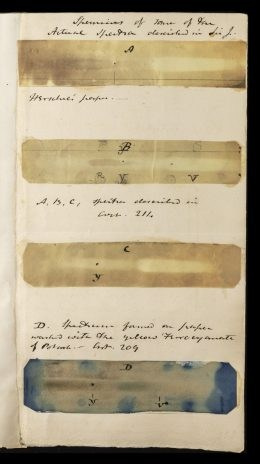 Specimens of some of the
Actual Spectra described in Sir J.
A
Herschel's paper.
B
R Y V
A, B, C, spectra described in
211
C
Y
D. Spectrum formed on paper
washed with the yellow Ferrocyanate
of Potash. 209
D
Y